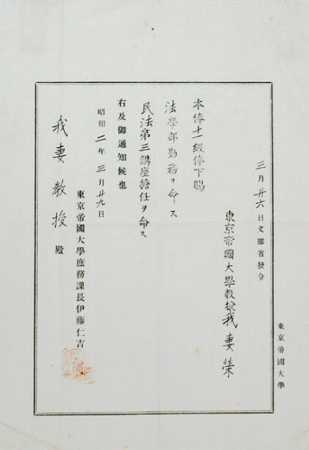 東京帝國大學
三月廿六日文部省發令
東京帝國大學教授我妻榮
本俸十一級俸下賜
法學部勤務ヲ命ス
民法第三講座擔任ヲ命ス
右及御通知候也
昭和二年三月廿九日
東京帝國大學庶務課長伊藤仁吉
我妻教授殿